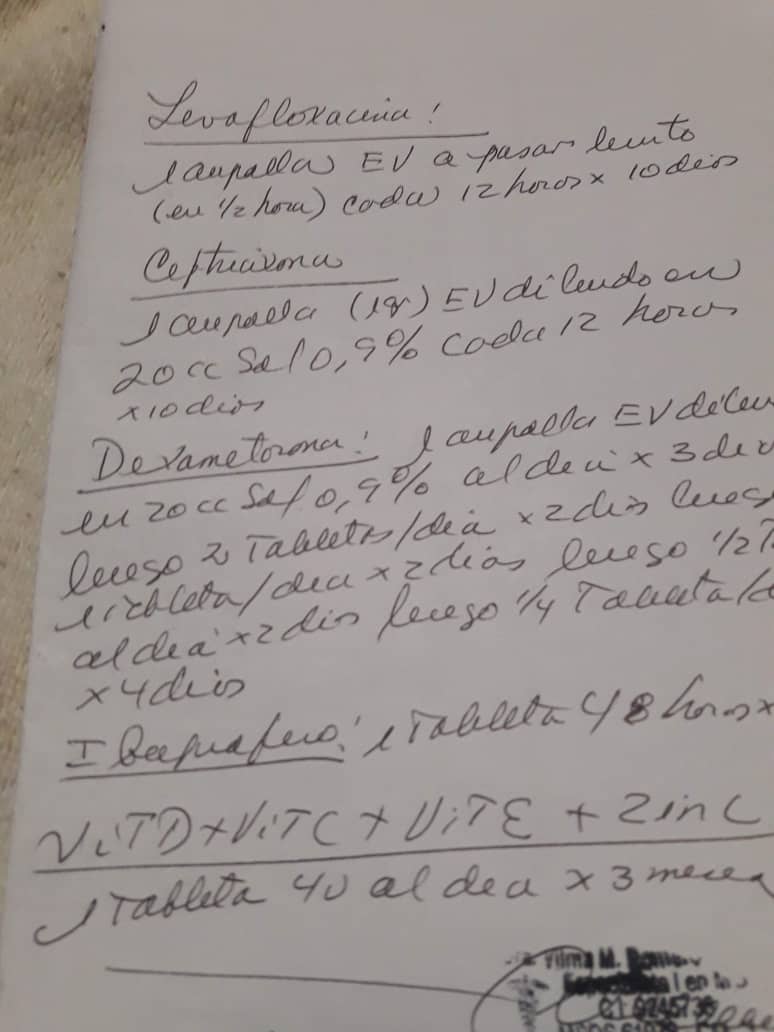 Levofloxacina:
1 ampolla EV a pasar lento
(en 1/2 hora) cada 12 horas x 10 dias
Ceftriaxona
1 ampolla (1gr) EV diluido en
20 cc Sol 0,9% cada 12 horas
x 10 dias
Dexametasona: 1 ampolla EV
en 20cc Sol 0,9% al dia x 3
luego 2 Tabletas/dia x 2 dias
1 tableta/dia x 2 dias luego 1/2
al dia x 2 dias luego 1/4 Tableta/
x 4 dias
Ibuprofeno: 1 Tableta c/8 horas x
VitD + VitC + VitE + Zinc
1 Tableta al dia x 3 meses
Vilma M.
en